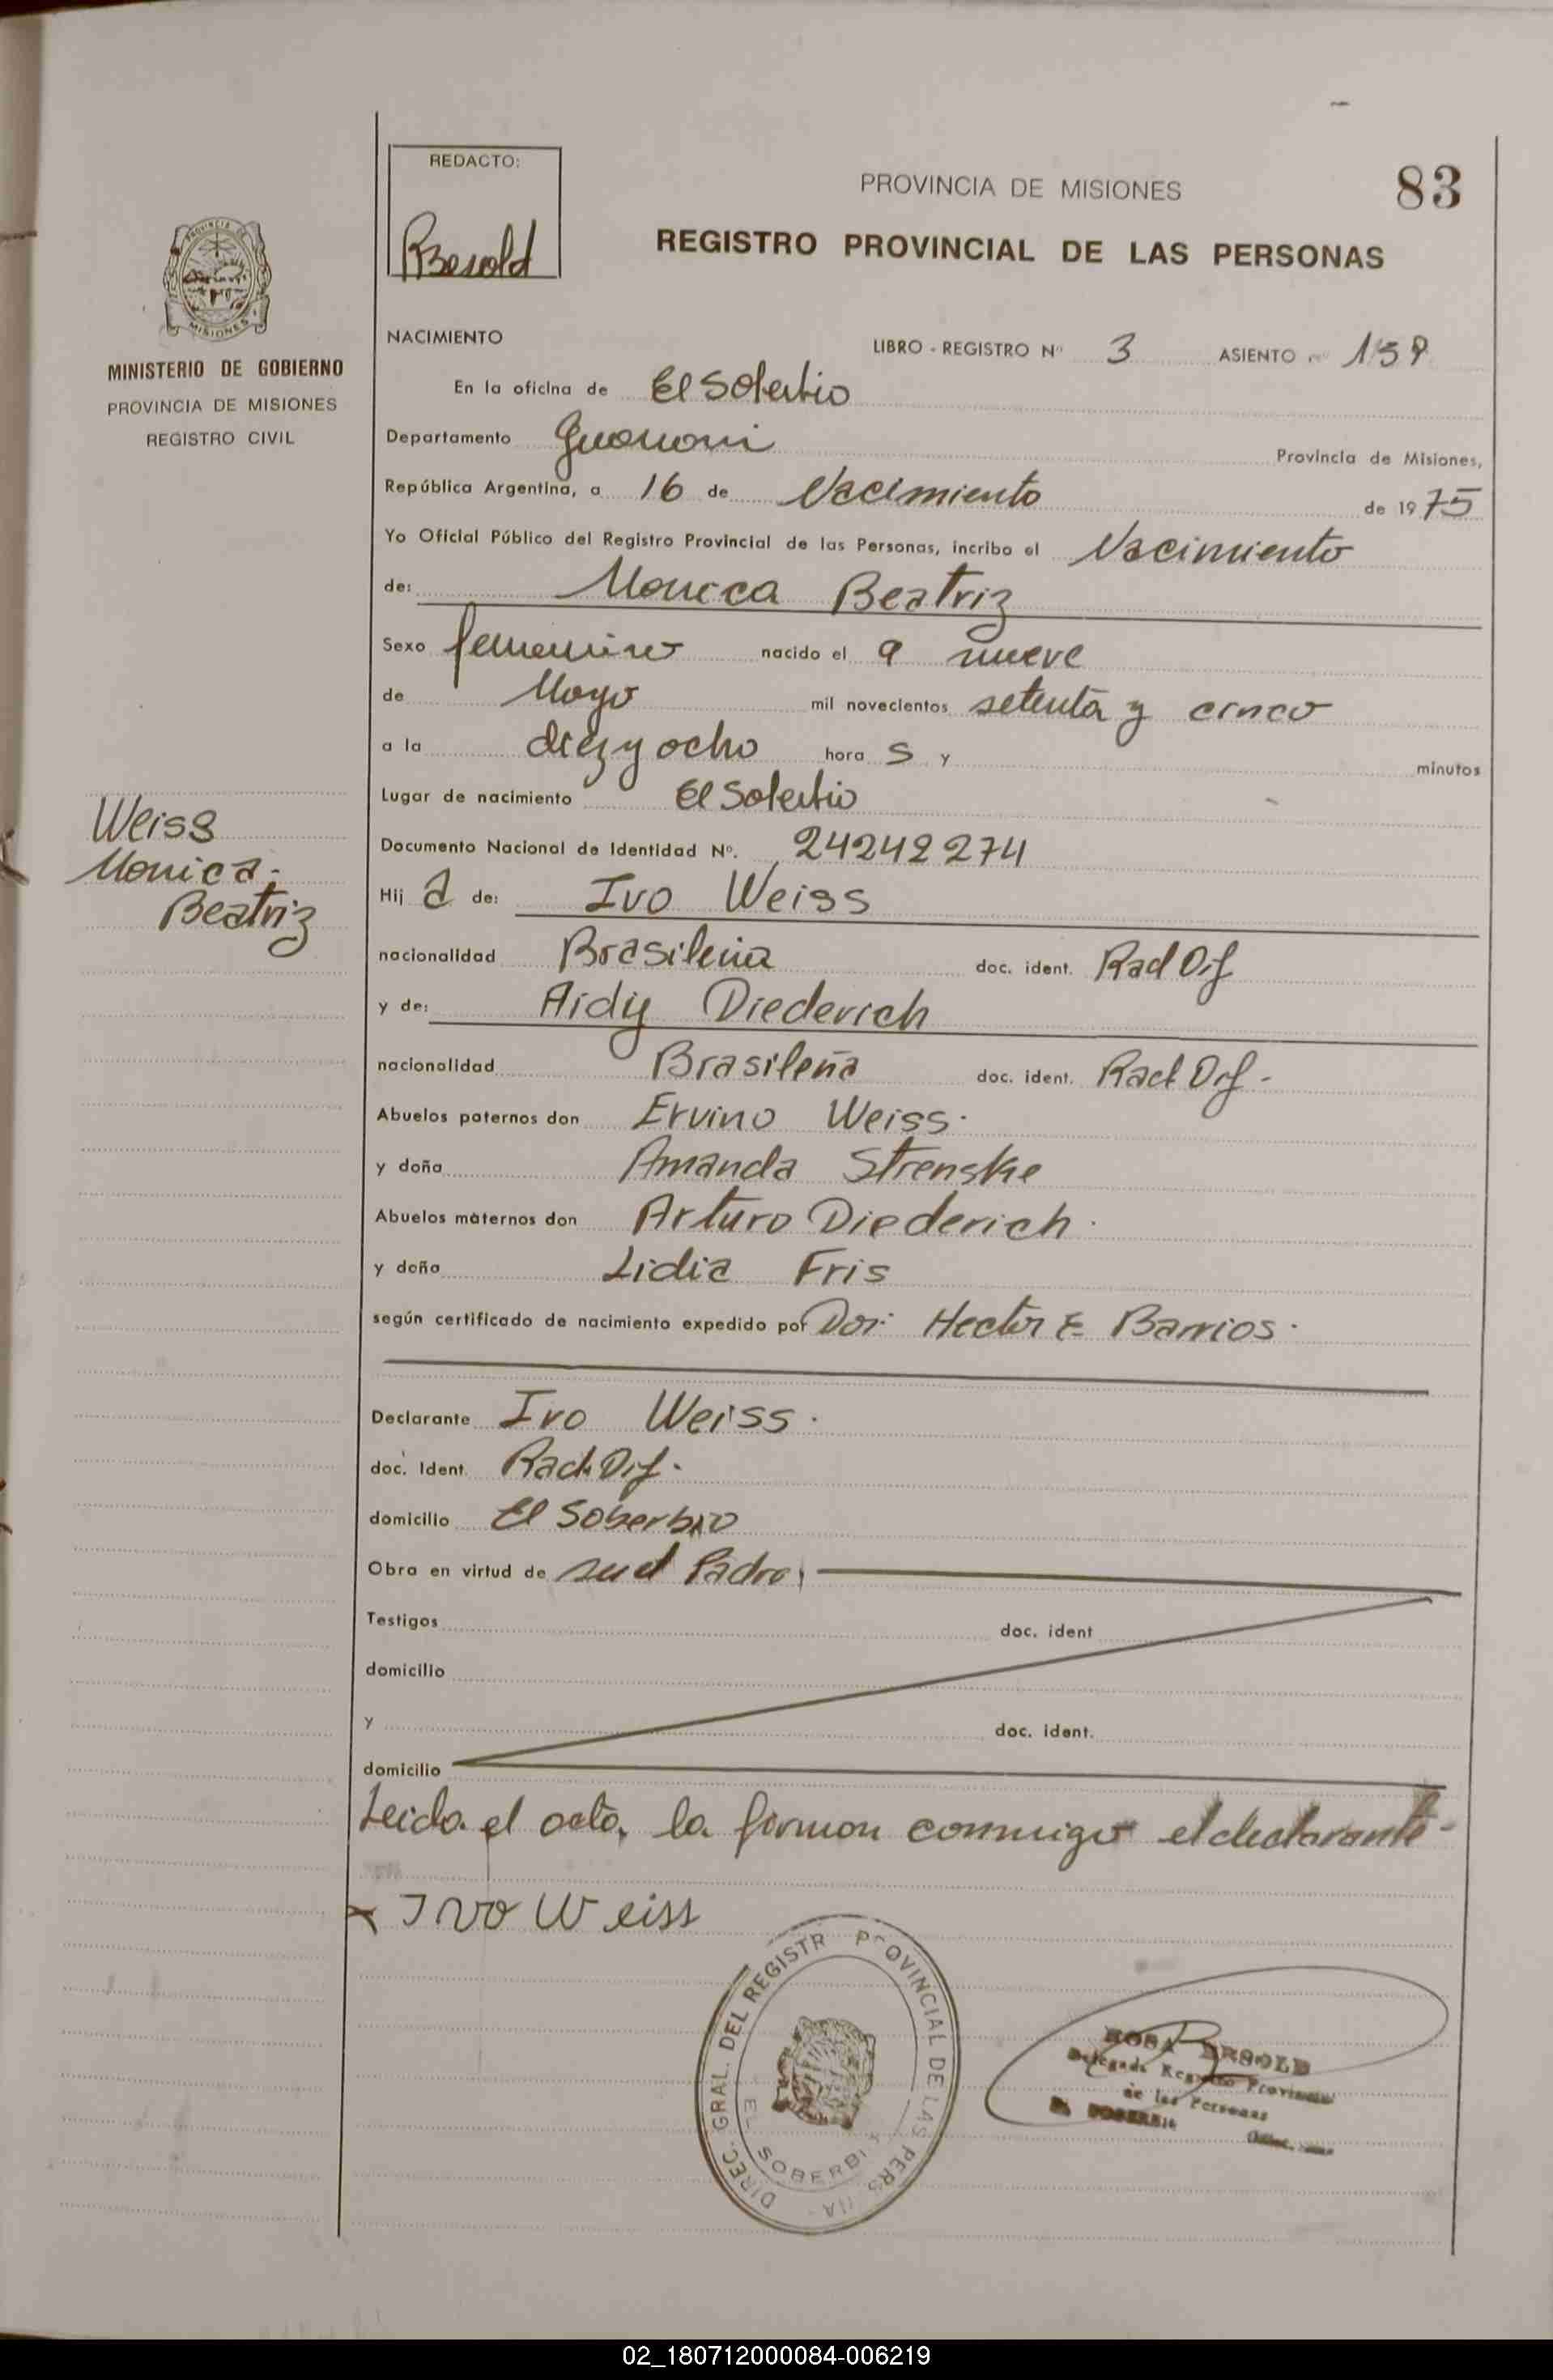 REDACTO:
RBesold
PROVINCIA DE MISIONES
83
REGISTRO PROVINCIAL DE LAS PERSONAS
PROVINCIA DE
MISIONES
MINISTERIO DE GOBIERNO
PROVINCIA DE MISIONES
REGISTRO CIVIL
NACIMIENTO
LIBRO - REGISTRO Nº 3 ASIENTO nº
En la oficina de El Soberbio
Departamento Guarani Provincia de Misiones,
República Argentina, a 16 de Nacimiento de 1975
Yo Oficial Público del Registro Provincial de las Personas, incribo el Nacimiento
de: Monica Beatriz
Sexo femenino nacido el 9 nueve
de Mayo mil novecientos setenta y cinco
a la diez y ocho hora s y minutos
Lugar de nacimiento El Soberbio
Weiss
Monica-
Beatriz
Documento Nacional de Identidad Nº. 24242274
Hij a de: Ivo Weiss
nacionalidad Brasileña doc. ident. Rad Dif
y de: Aidy Diederich
nacionalidad Brasileña doc. ident. Rad Dif-
Abuelos paternos don Ervino Weiss.
y doña Amanda Strenske
Abuelos maternos don Arturo Diederich.
y doña Lidia Fris
según certificado de nacimiento expedido por Dor. Hector E. Barrios.
Declarante Ivo Weiss.
doc. Ident. Rad. Dif.
domicilio El Soberbio
Obra en virtud de ser el Padre,
Testigos doc. ident
domicilio
y doc. ident.
domicilio
Leida el acta, la firman conmigo el declarante-
x Ivo Weiss
DIREC. GRAL. DEL REGISTR PROVINCIAL DE LAS PERS
EL SOBERBI
ROSA BESOLD
Delegada Registro Provincial
de las Personas
EL SOBERBIO
02_180712000084-006219